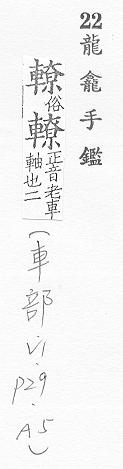 22 龍龕手鑑
俗轑正音老車
軸也二
(車部·VI·P29·A5)